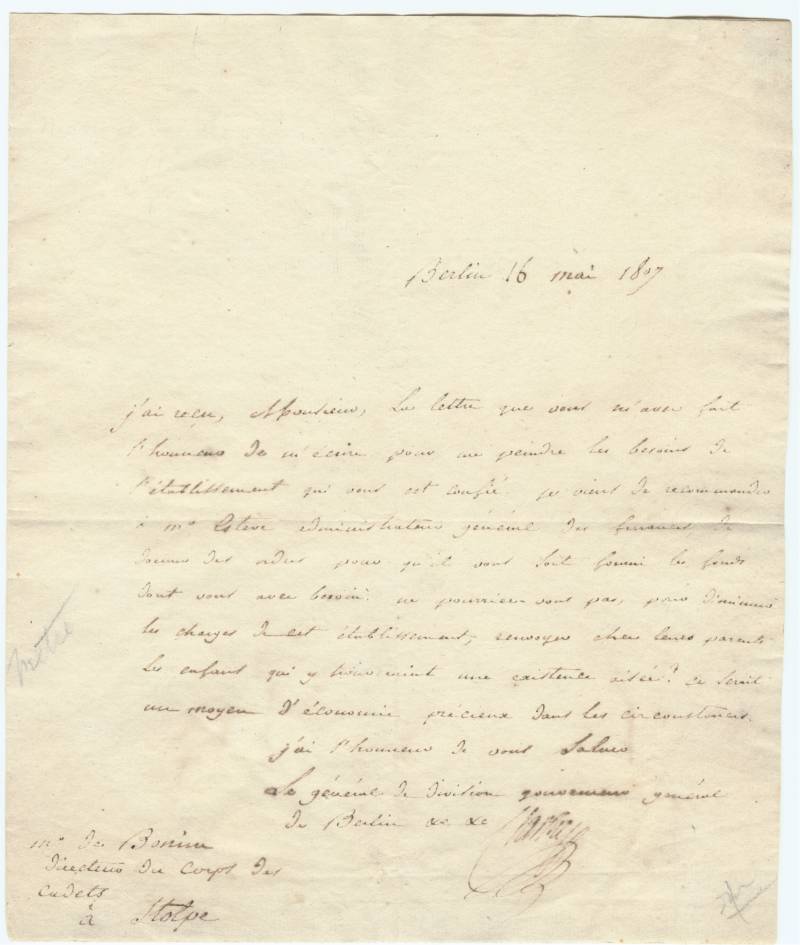 Berlin 16 mai 1807
j'ai reçu, Monsieur, La lettre que vous m'avez fait
l'honneur de m'écrire pour me peindre les besoins de
l'établissement qui vous est confié. je viens de recommander
à Mr Estève administrateur général des finances de
donner des ordres pour qu'il vous soit fourni les fonds
dont vous avez besoin. ne pourriez-vous pas, pour diminuer
les charges de cet établissement, renvoyer chez leurs parents
les enfant qui y trouveraient une existence aisée? ce serait
un moyen d'économie précieux dans les circonstances.
j'ai l'honneur de vous saluer
Le général de division gouverneur général
de Berlin &c &c Clarke
Mr de Bonin
directeur du Corps des
Cadets
à Stolpe